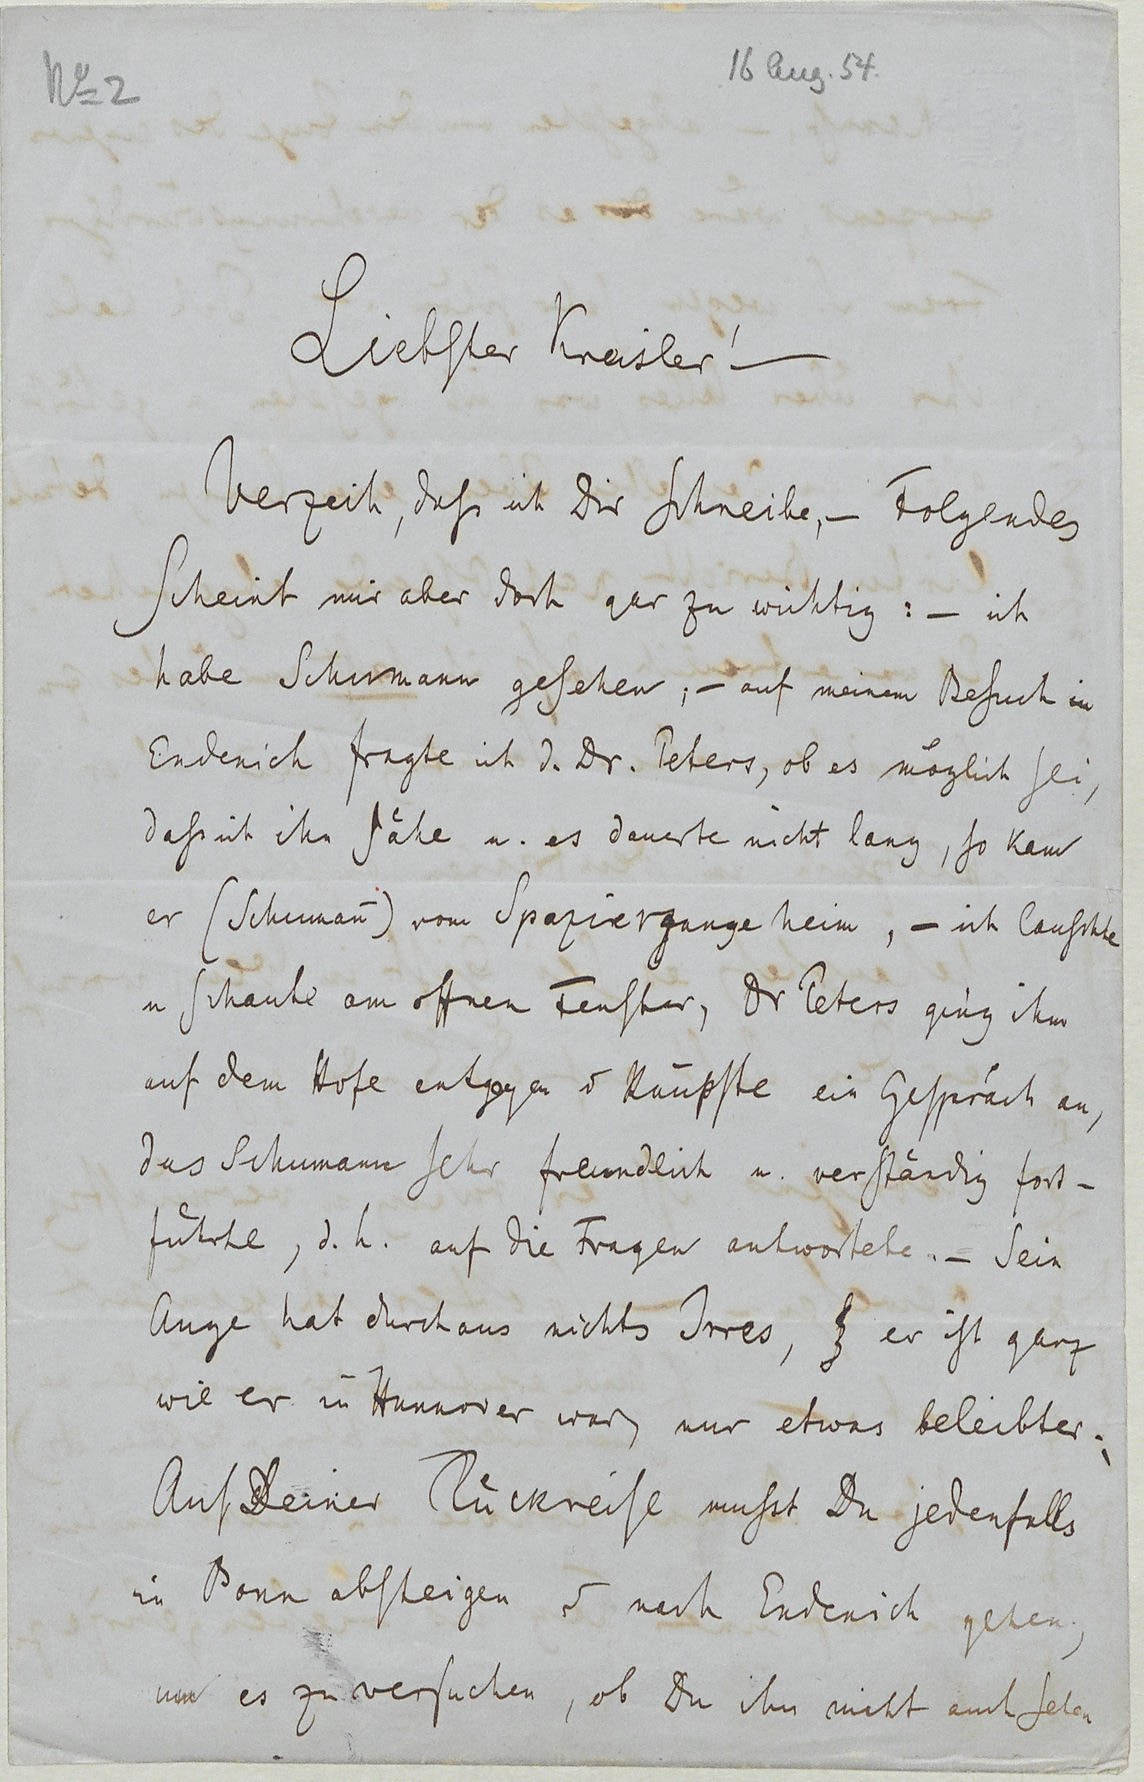 No 2
16 Aug. 54.
Liebster Kreisler! —
Verzeih, dass ich Dir schreibe, — Folgendes
scheint mir aber doch gar zu wichtig: — ich
habe Schumann gesehen; — auf meinem Besuch in
Endenich fragte ich d. Dr. Peters, ob es möglich sei,
dass ich ihn sähe u. es dauerte nicht lang, so kam
er (Schumañ) vom Spaziergange heim, — ich lauschte
u schaute am offnen Fenster, Dr Peters ging ihm
auf dem Hofe entgegen & knüpfte ein Gespräch an,
das Schumann sehr freundlich u. verständig fort-
führte, d. h. auf die Fragen antwortete. — Sein
Auge hat durchaus nichts Irres, er ist ganz
wie er in Hannover war, nur etwas beleibter.
Auf Deiner Rückreise musst Du jedenfalls
in Bonn absteigen & nach Endenich gehen,
um es zu versuchen, ob Du ihn nicht auch sehen